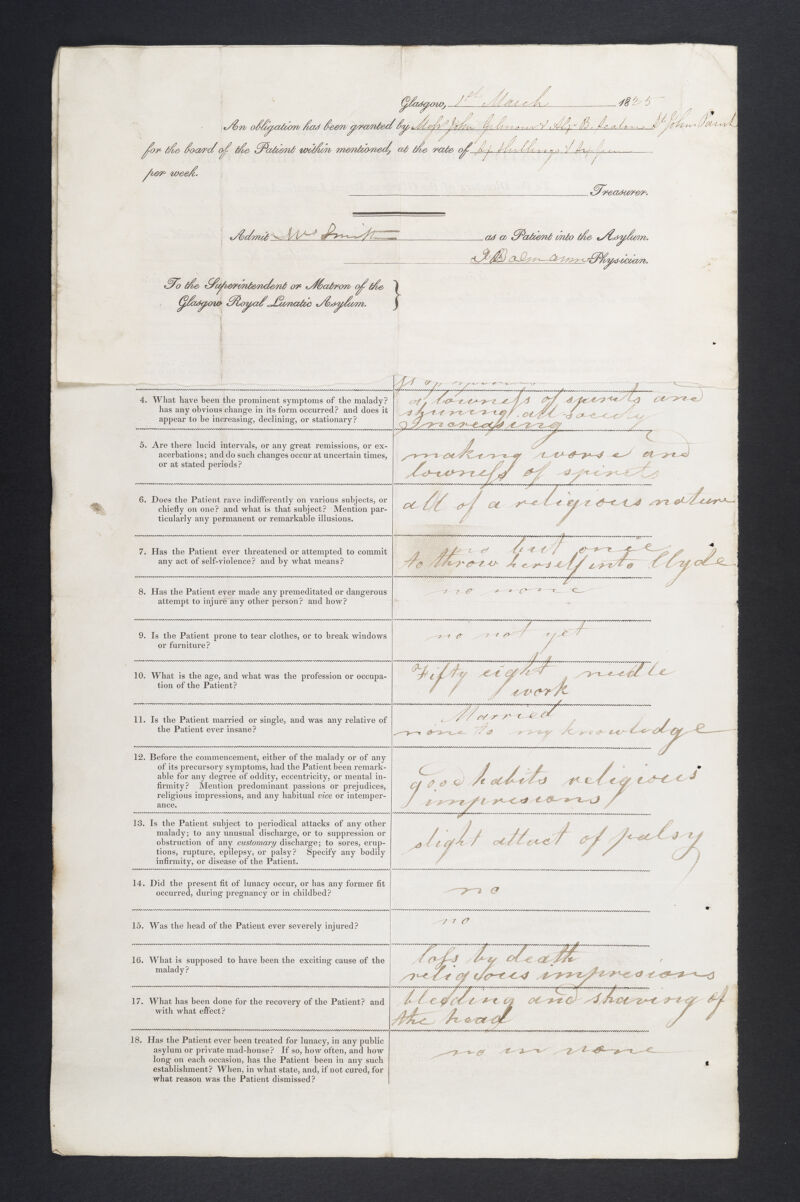 Glasgow, 1st March 1825
An obligation has been granted by Messrs John Gilmour & Alexr B. Seaton St John Parish
for the board of the Patient within mentioned, at the rate of Six Shillings & Sixpen
per week.
Treasurer.
Admit Mrs Smith as a Patient into the Asylum.
J Balmanno Physician.
To the Superintendent or Matron of the
Glasgow Royal Lunatic Asylum.
4. What have been the prominent symptoms of the malady?
has any obvious change in its form occurred? and does it
appear to be increasing, declining, or stationary?
a lowness of spirets and
shuning all Society
Increasing
5. Are there lucid intervals, or any great remissions, or ex-
acerbations; and do such changes occur at uncertain times,
or at stated periods?
making worse and
lowness of spirets
6. Does the Patient rave indifferently on various subjects, or
chiefly on one? and what is that subject? Mention par-
ticularly any permanent or remarkable illusions.
all of a religious nature
7. Has the Patient ever threatened or attempted to commit
any act of self-violence? and by what means?
no but once
to throw herself into Clyde
8. Has the Patient ever made any premeditated or dangerous
attempt to injure any other person? and how?
no none
9. Is the Patient prone to tear clothes, or to break windows
or furniture?
no not yet
10. What is the age, and what was the profession or occupa-
tion of the Patient?
Fifty eight needle
work
11. Is the Patient married or single, and was any relative of
the Patient ever insane?
Married
none to my knowledge
12. Before the commencement, either of the malady or of any
of its precursory symptoms, had the Patient been remark-
able for any degree of oddity, eccentricity, or mental in-
firmity? Mention predominant passions or prejudices,
religious impressions, and any habitual vice or intemper-
ance.
good habits religious
impresions
13. Is the Patient subject to periodical attacks of any other
malady; to any unusual discharge, or to suppression or
obstruction of any customary discharge; to sores, erup-
tions, rupture, epilepsy, or palsy? Specify any bodily
infirmity, or disease of the Patient.
slight attact of palsy
14. Did the present fit of lunacy occur, or has any former fit
occurred, during pregnancy or in childbed?
no
15. Was the head of the Patient ever severely injured?
no
16. What is supposed to have been the exciting cause of the
malady?
loss by death
religious impresions
17. What has been done for the recovery of the Patient? and
with what effect?
bleeding and shaving of
the head
18. Has the Patient ever been treated for lunacy, in any public
asylum or private mad-house? If so, how often, and how
long on each occasion, has the Patient been in any such
establishment? When, in what state, and, if not cured, for
what reason was the Patient dismissed?
no in none